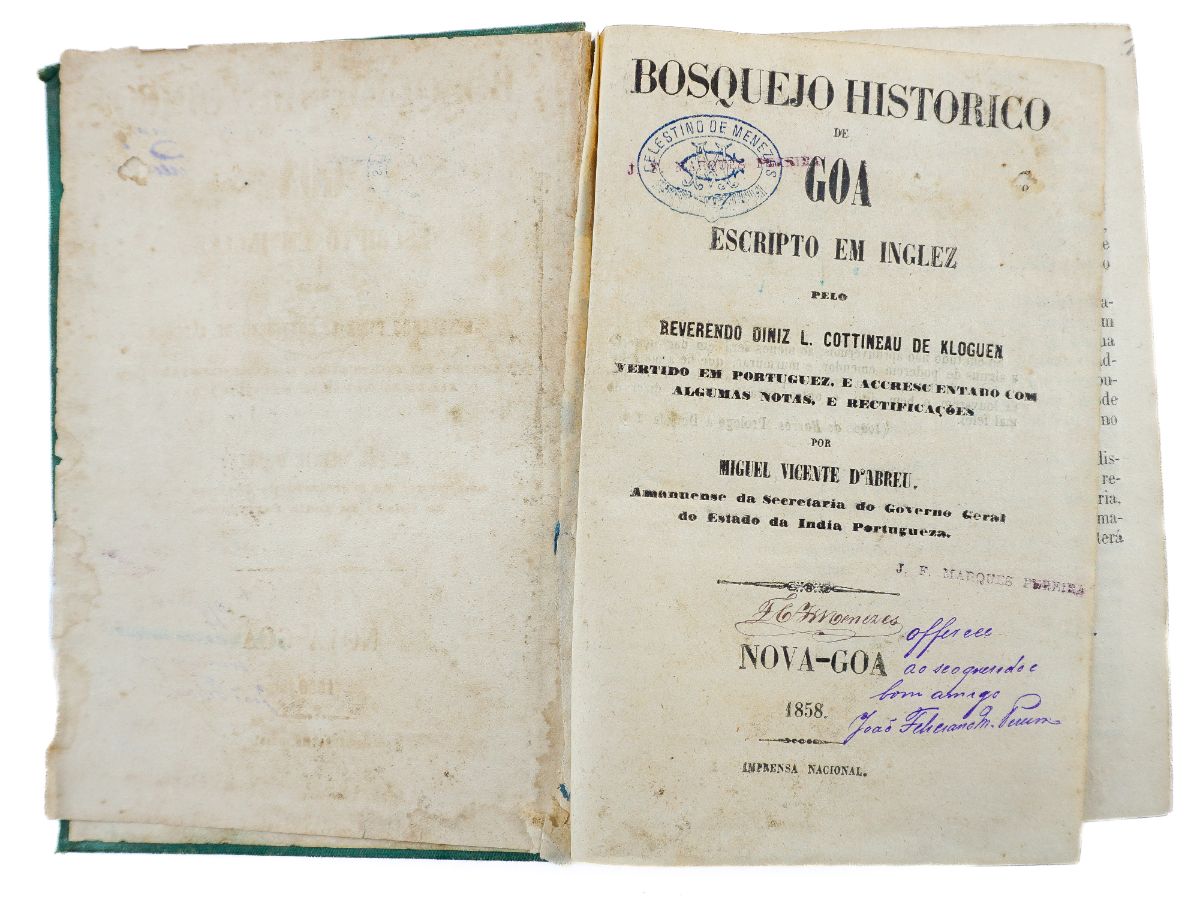 BOSQUEJO HISTORICO
DE
CELESTINO DE MENEZES
GOA
ESCRIPTO EM INGLEZ
PELO
REVERENDO DINIZ L. COTTINEAU DE KLOGUEN
VERTIDO EM PORTUGUEZ, E ACCRESCENTADO COM
ALGUMAS NOTAS, E RECTIFICAÇÕES
POR
MIGUEL VICENTE D'ABREU,
Amanuense da Secretaria do Governo Geral
do Estado da India Portugueza.
J. F. MARQUES PEREIRA
Menezes
offerece
ao seo querido e
bom amigo
João Feliciano M. Pereira
NOVA-GOA
1858.
IMPRENSA NACIONAL.